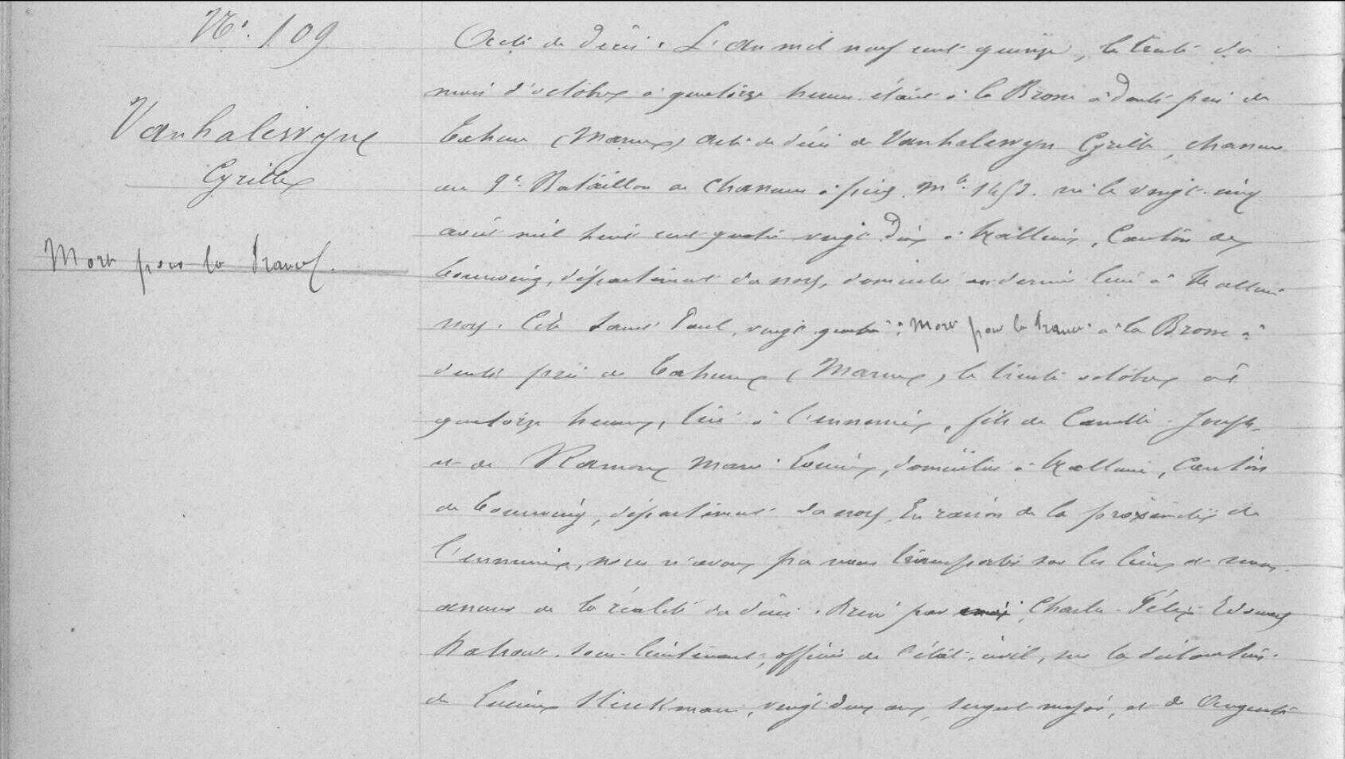 N° 109
Vanhalewyn
Cyrille
Mort pour la France.
Acte de décès. L'an mil neuf cent quinze, le trente du
mois d'octobre à quatorze heures étant à la Brosse à dents près de
Tahure (Marne) acte de décès de Vanhalewyn Cyrille, chasseur
au 9e Bataillon de chasseurs à pied, Mle né le vingt cinq
avril mil huit cent quatre vingt dix à Halluin, canton de
Tourcoing, département du nord, domicilié en dernier lieu à Halluin
nord. Cité Saint Paul, vingt quatre; Mort pour la France à la Brosse à
dents près de Tahure (Marne), le trente octobre à
quatorze heures, tué à l'ennemi, fils de Camille Joseph
et de Marie, domiciliés à Halluin, canton
de Tourcoing, département du nord. En raison de la proximité de
l'ennemi, nous n'avons pu nous transporter sur les lieux et nous
assurer de la réalité du décès. Dressé par Charles Félix Edouard
sous-lieutenant, officier de l'état-civil, sur la déclaration
de Lucien, vingt deux ans, sergent major, et de